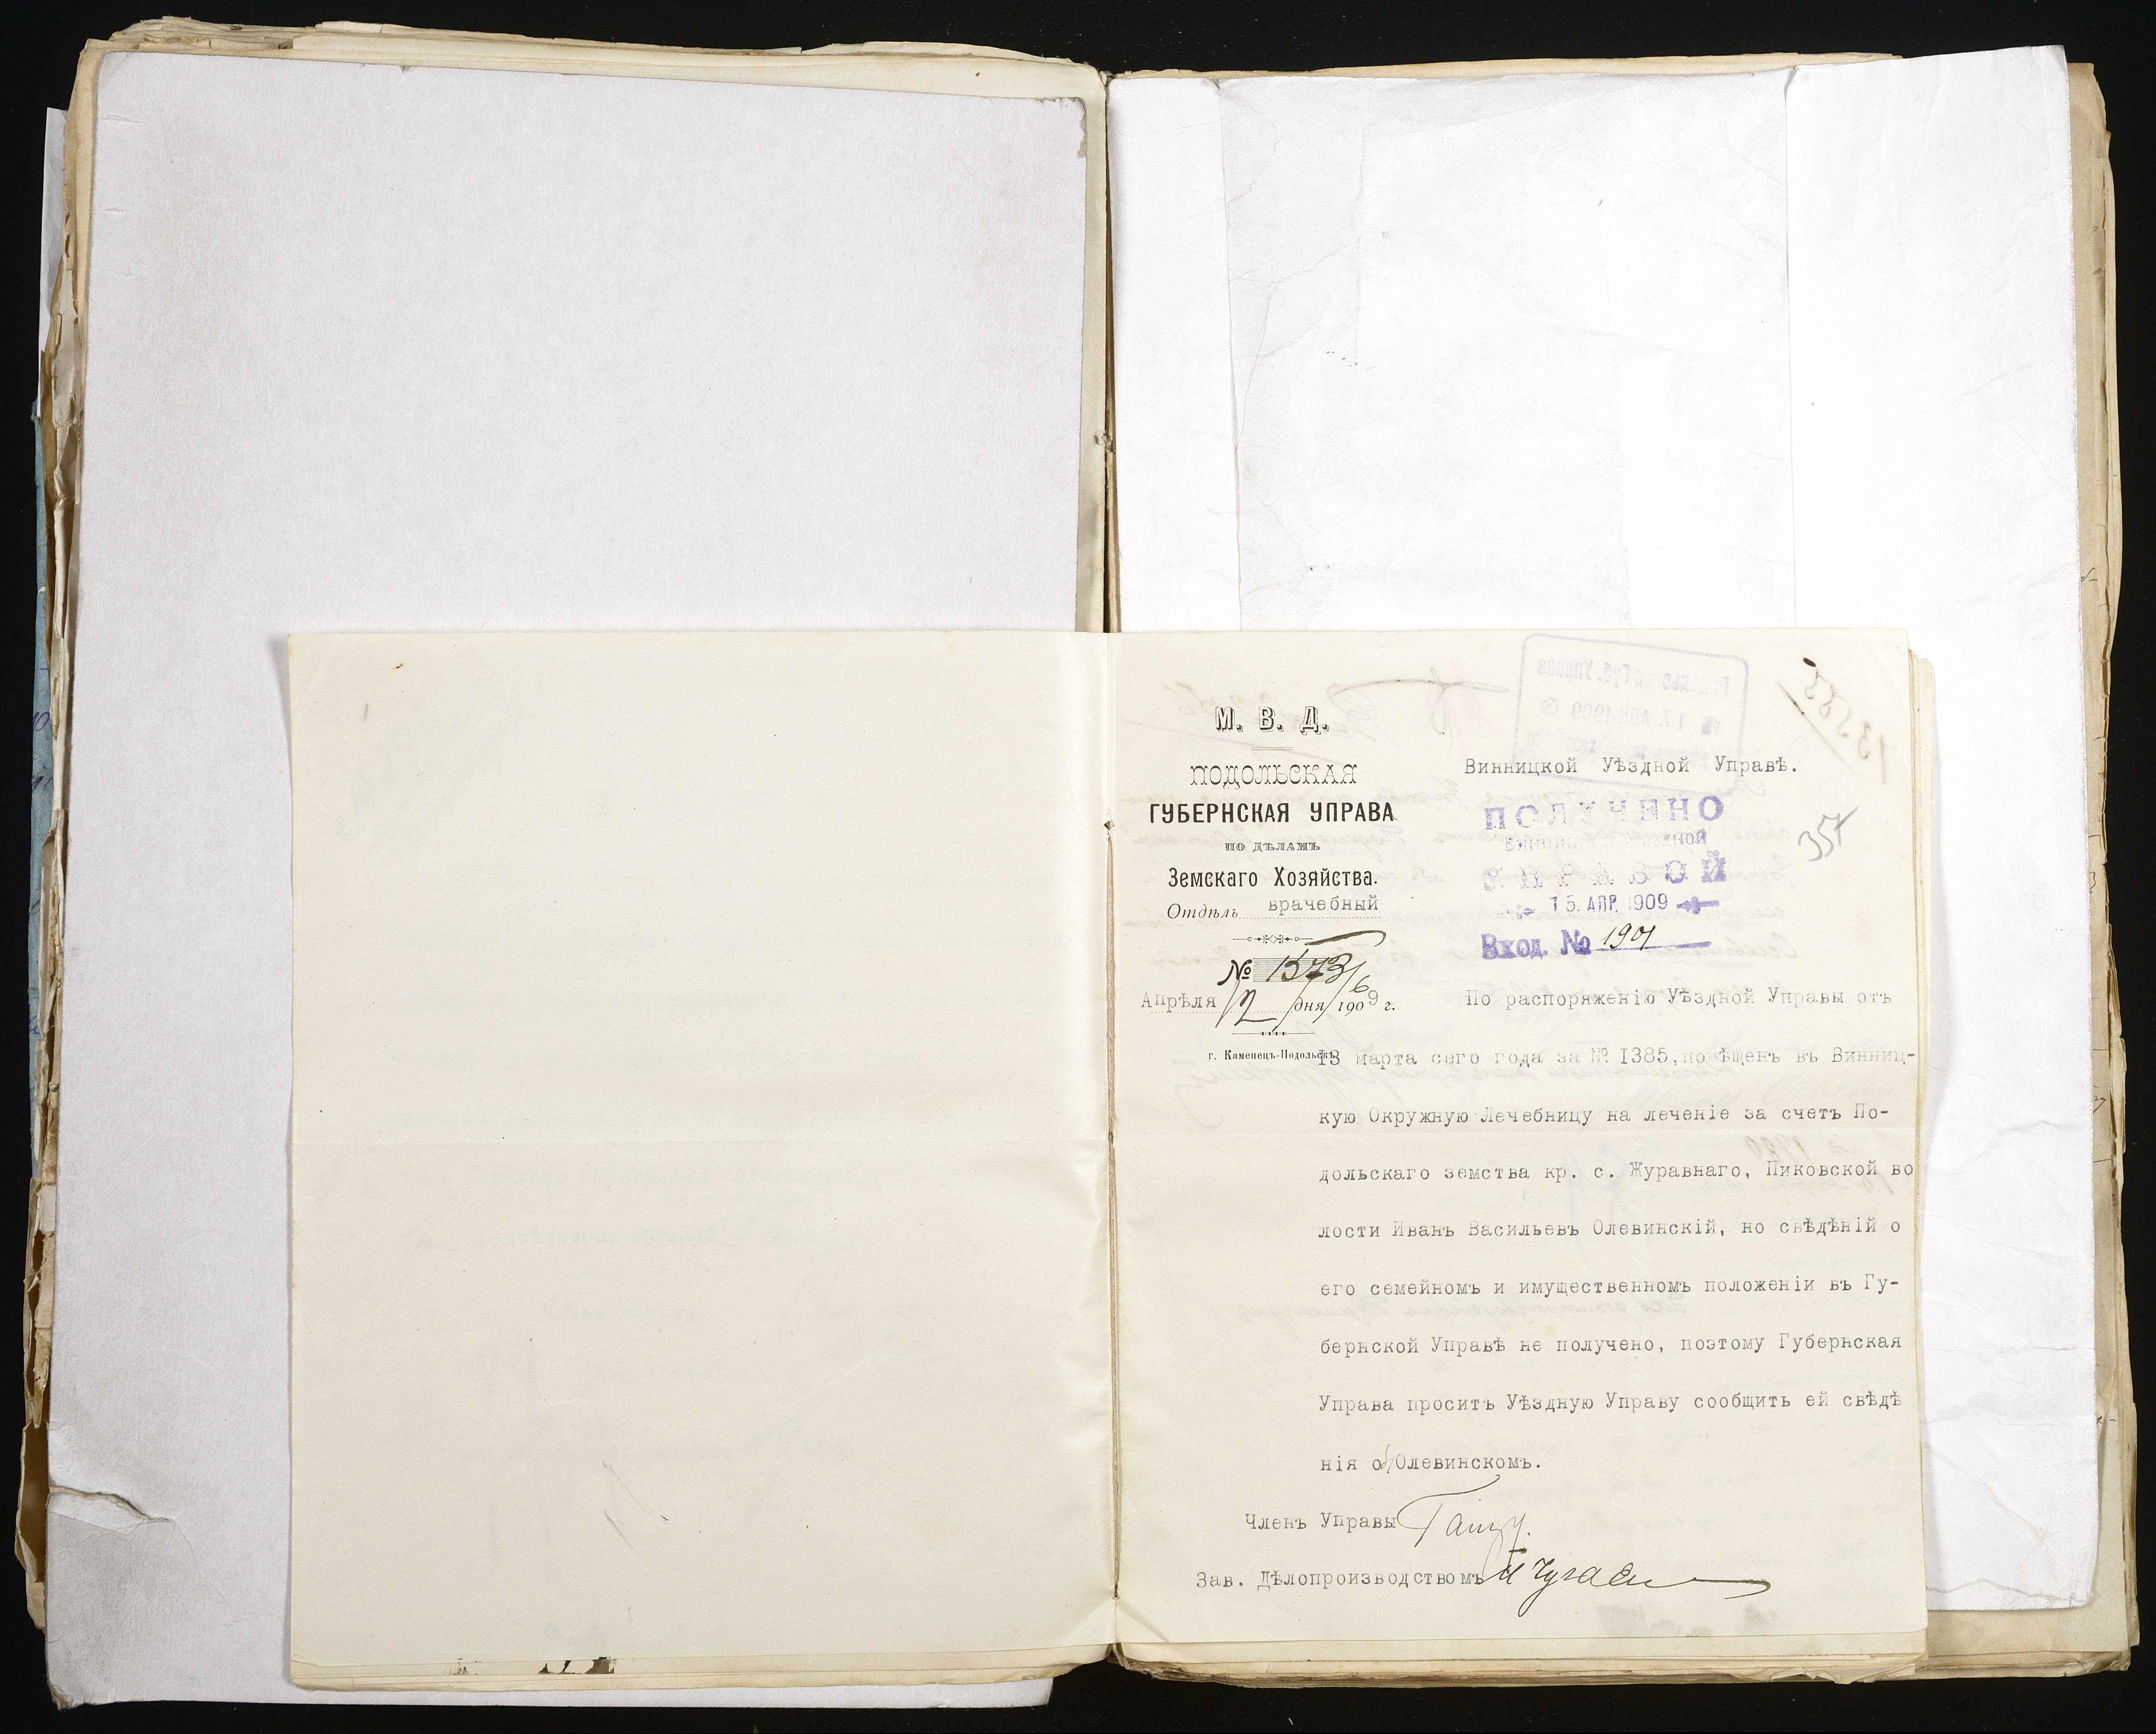 М. В. Д.
ПОДОЛЬСКАЯ
ГУБЕРНСКАЯ УПРАВА
ПО ДѢЛАМЪ
Земскаго Хозяйства.
Отдѣлъ врачебный
№ 1573/6
Апрѣля 12 дня 1909 г.
г. Каменецъ-Подольскъ
355
Винницкой Уѣздной Управѣ.
ПОЛУЧЕНО
ВИННИЦКОЙ УѢЗДНОЙ
УПРАВОЙ
15. АПР. 1909
Вход. № 1901
По распоряженію Уѣздной Управы отъ
13 марта сего года за № I385, помѣщенъ въ Винниц-
кую Окружную Лечебницу на леченіе за счетъ По-
дольскаго земства кр. с. Журавнаго, Пиковской во
лости Иванъ Васильевъ Олевинскій, но свѣдѣній о
его семейномъ и имущественномъ положеніи въ Гу-
бернской Управѣ не получено, поэтому Губернская
Управа проситъ Уѣздную Управу сообщить ей свѣдѣ
нія объ Олевинскомъ.
Членъ Управы
Зав. Дѣлопроизводствомъ